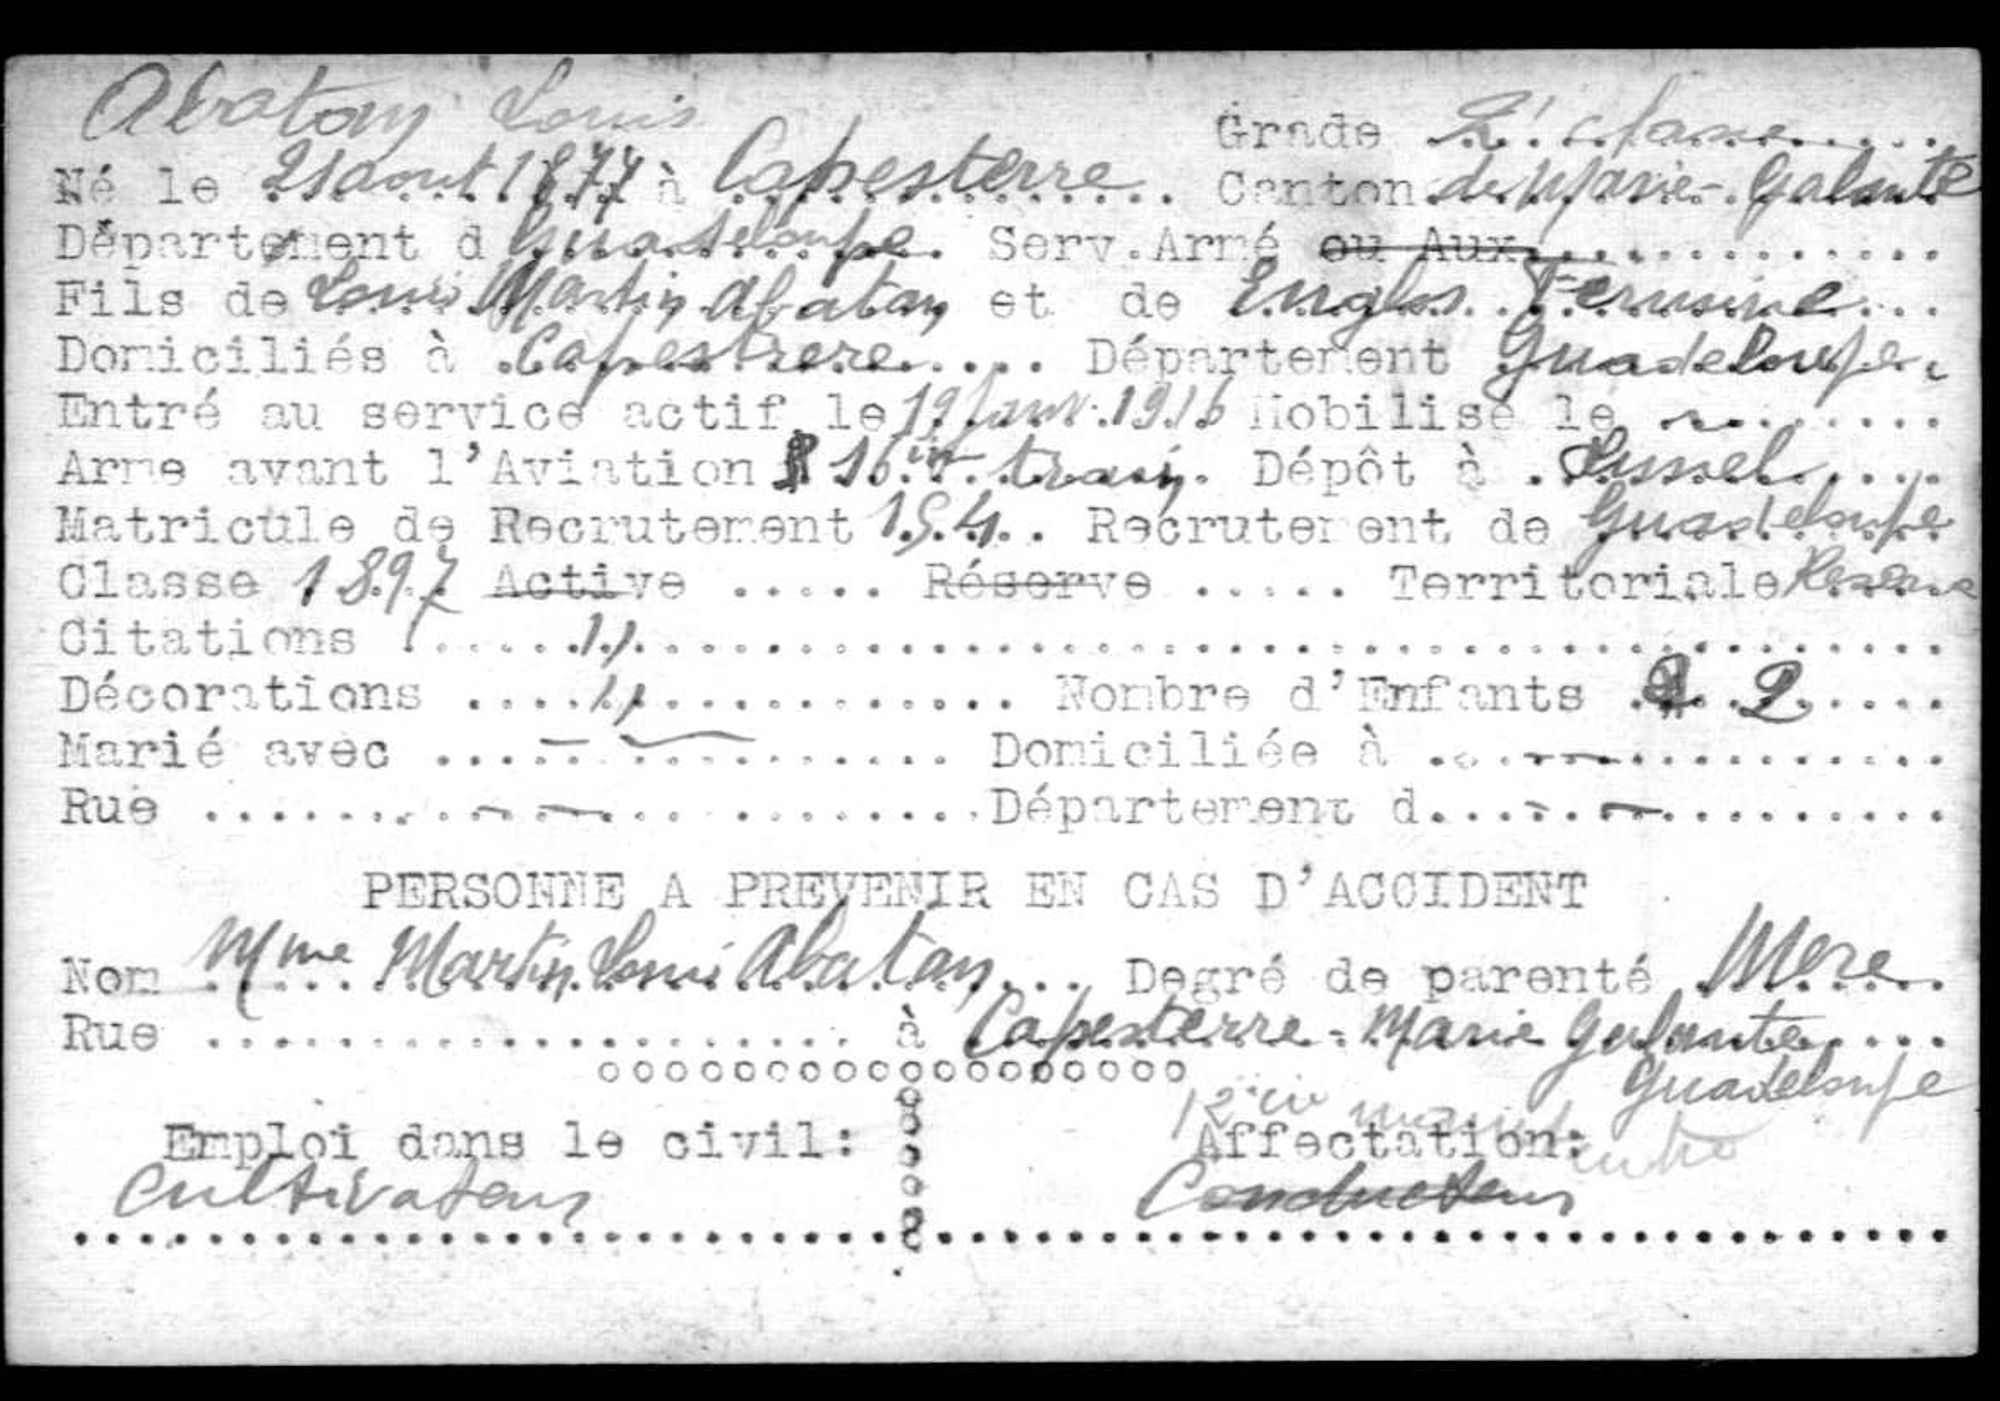 Abatan Louis Grade 2e classe
Né le 21 aout 1877 à Capesterre Canton de Marie-Galante
Département d Guadeloupe. Serv.Armé ou Aux.
Fils de Louis Martin Abatan et de Englos Ferusine
Domiciliés à Capestrere Département Guadeloupe
Entré au service actif le 19 Janv. 1916 Mobilisé le
Arme avant l'Aviation 16 train Dépôt à Lussel
Matricule de Recrutement 154 Recrutement de Guadeloupe
Classe 1897 Active ..... Réserve ..... Territoriale Reserve
Citations
Décorations Nombre d'Enfants 2
Marié avec Domiciliée à
Rue Département d
PERSONNE A PREVENIR EN CAS D'ACCIDENT
Nom Mme Martin Louis Abatan Degré de parenté Mere
Rue à Capesterre - Marie Galante
Guadeloupe
12
Emploi dans le civil: Affectation:
Cultivateur Conducteur